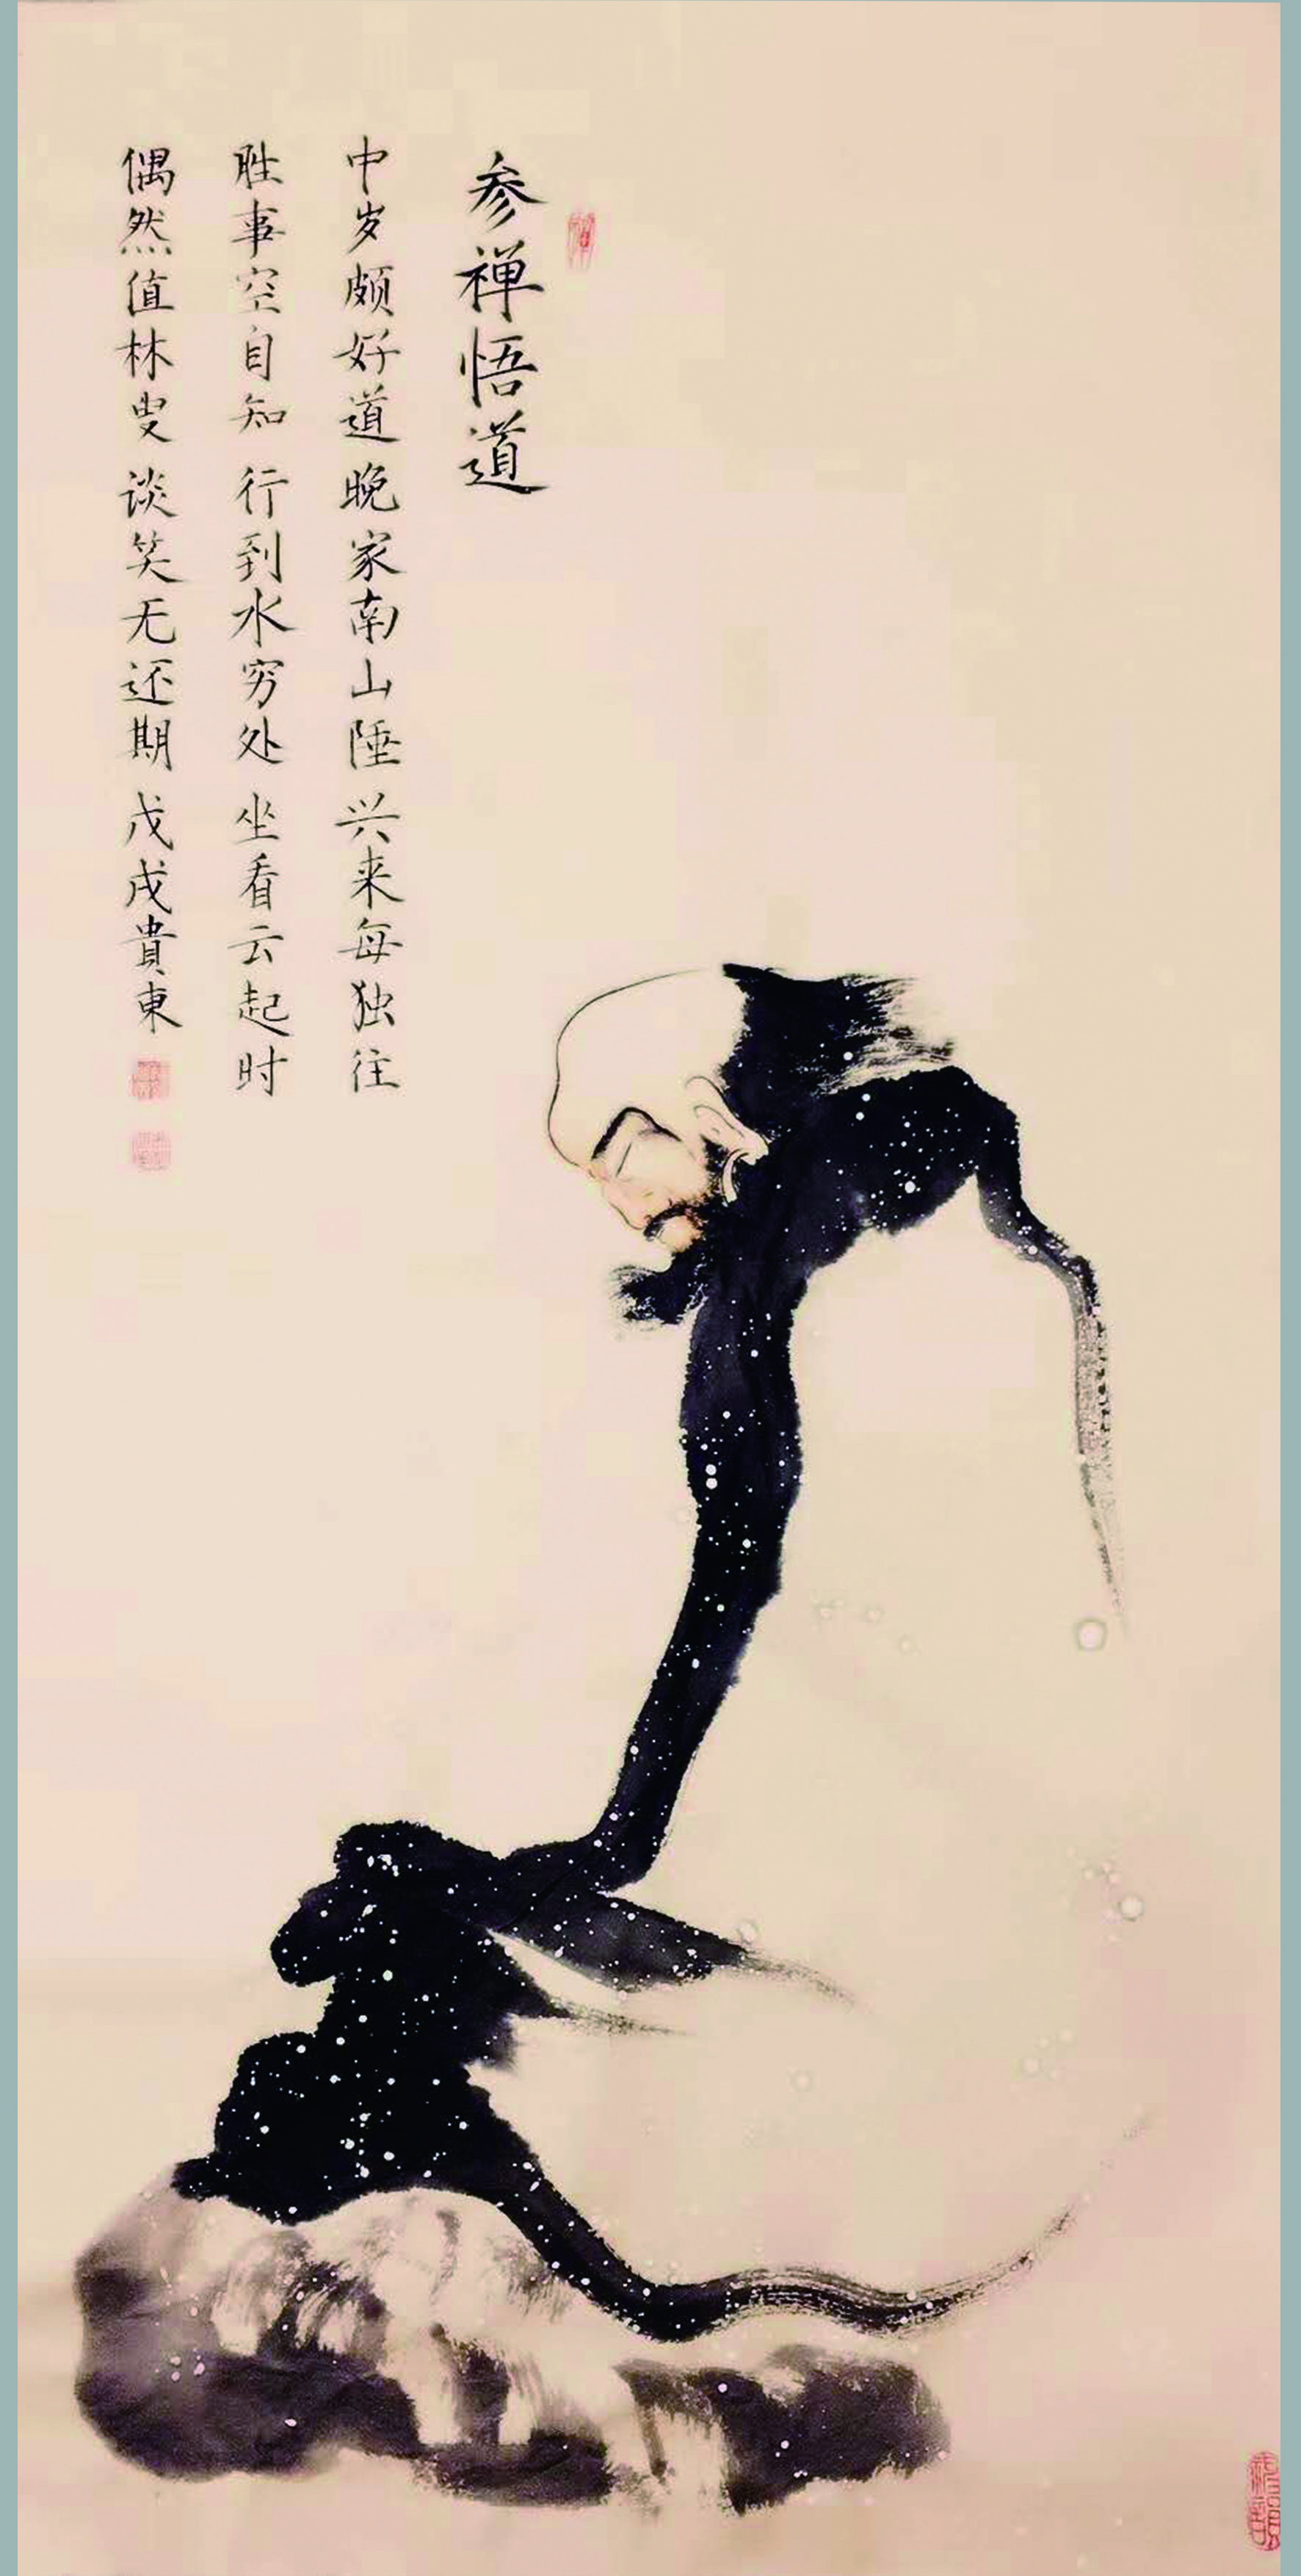 参禅悟道
中岁颇好道 晚家南山陲 兴来每独往
胜事空自知 行到水穷处 坐看云起时
偶然值林叟 谈笑无还期 戊戌贵東